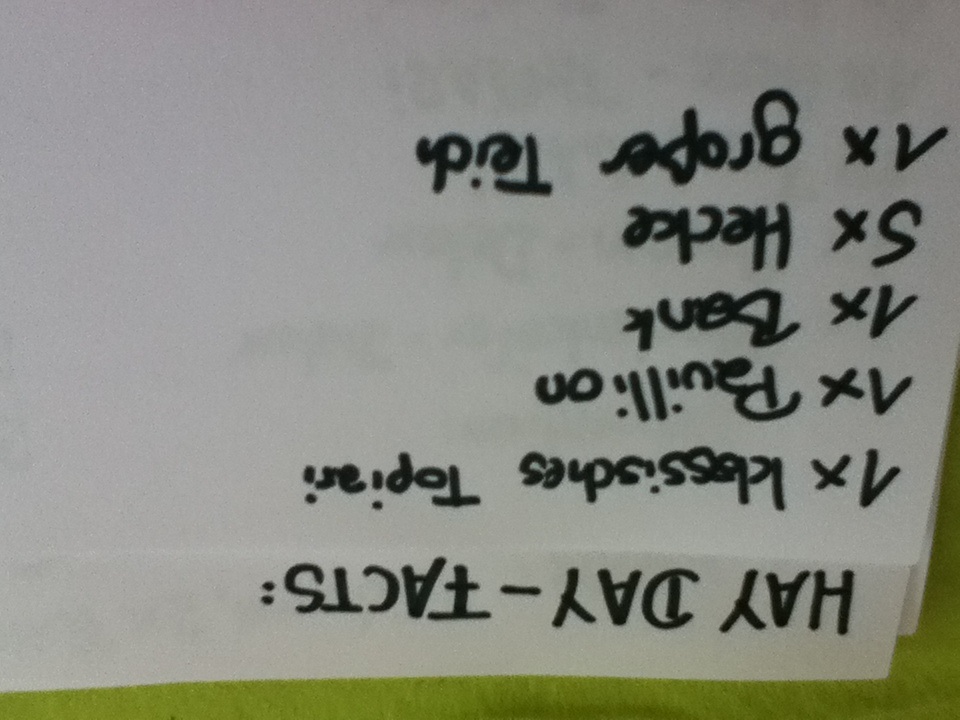 HAY DAY - FACTS:
1x klassisches Topiari
1x Pavillion
1x Bank
5x Hecke
1x großer Teich